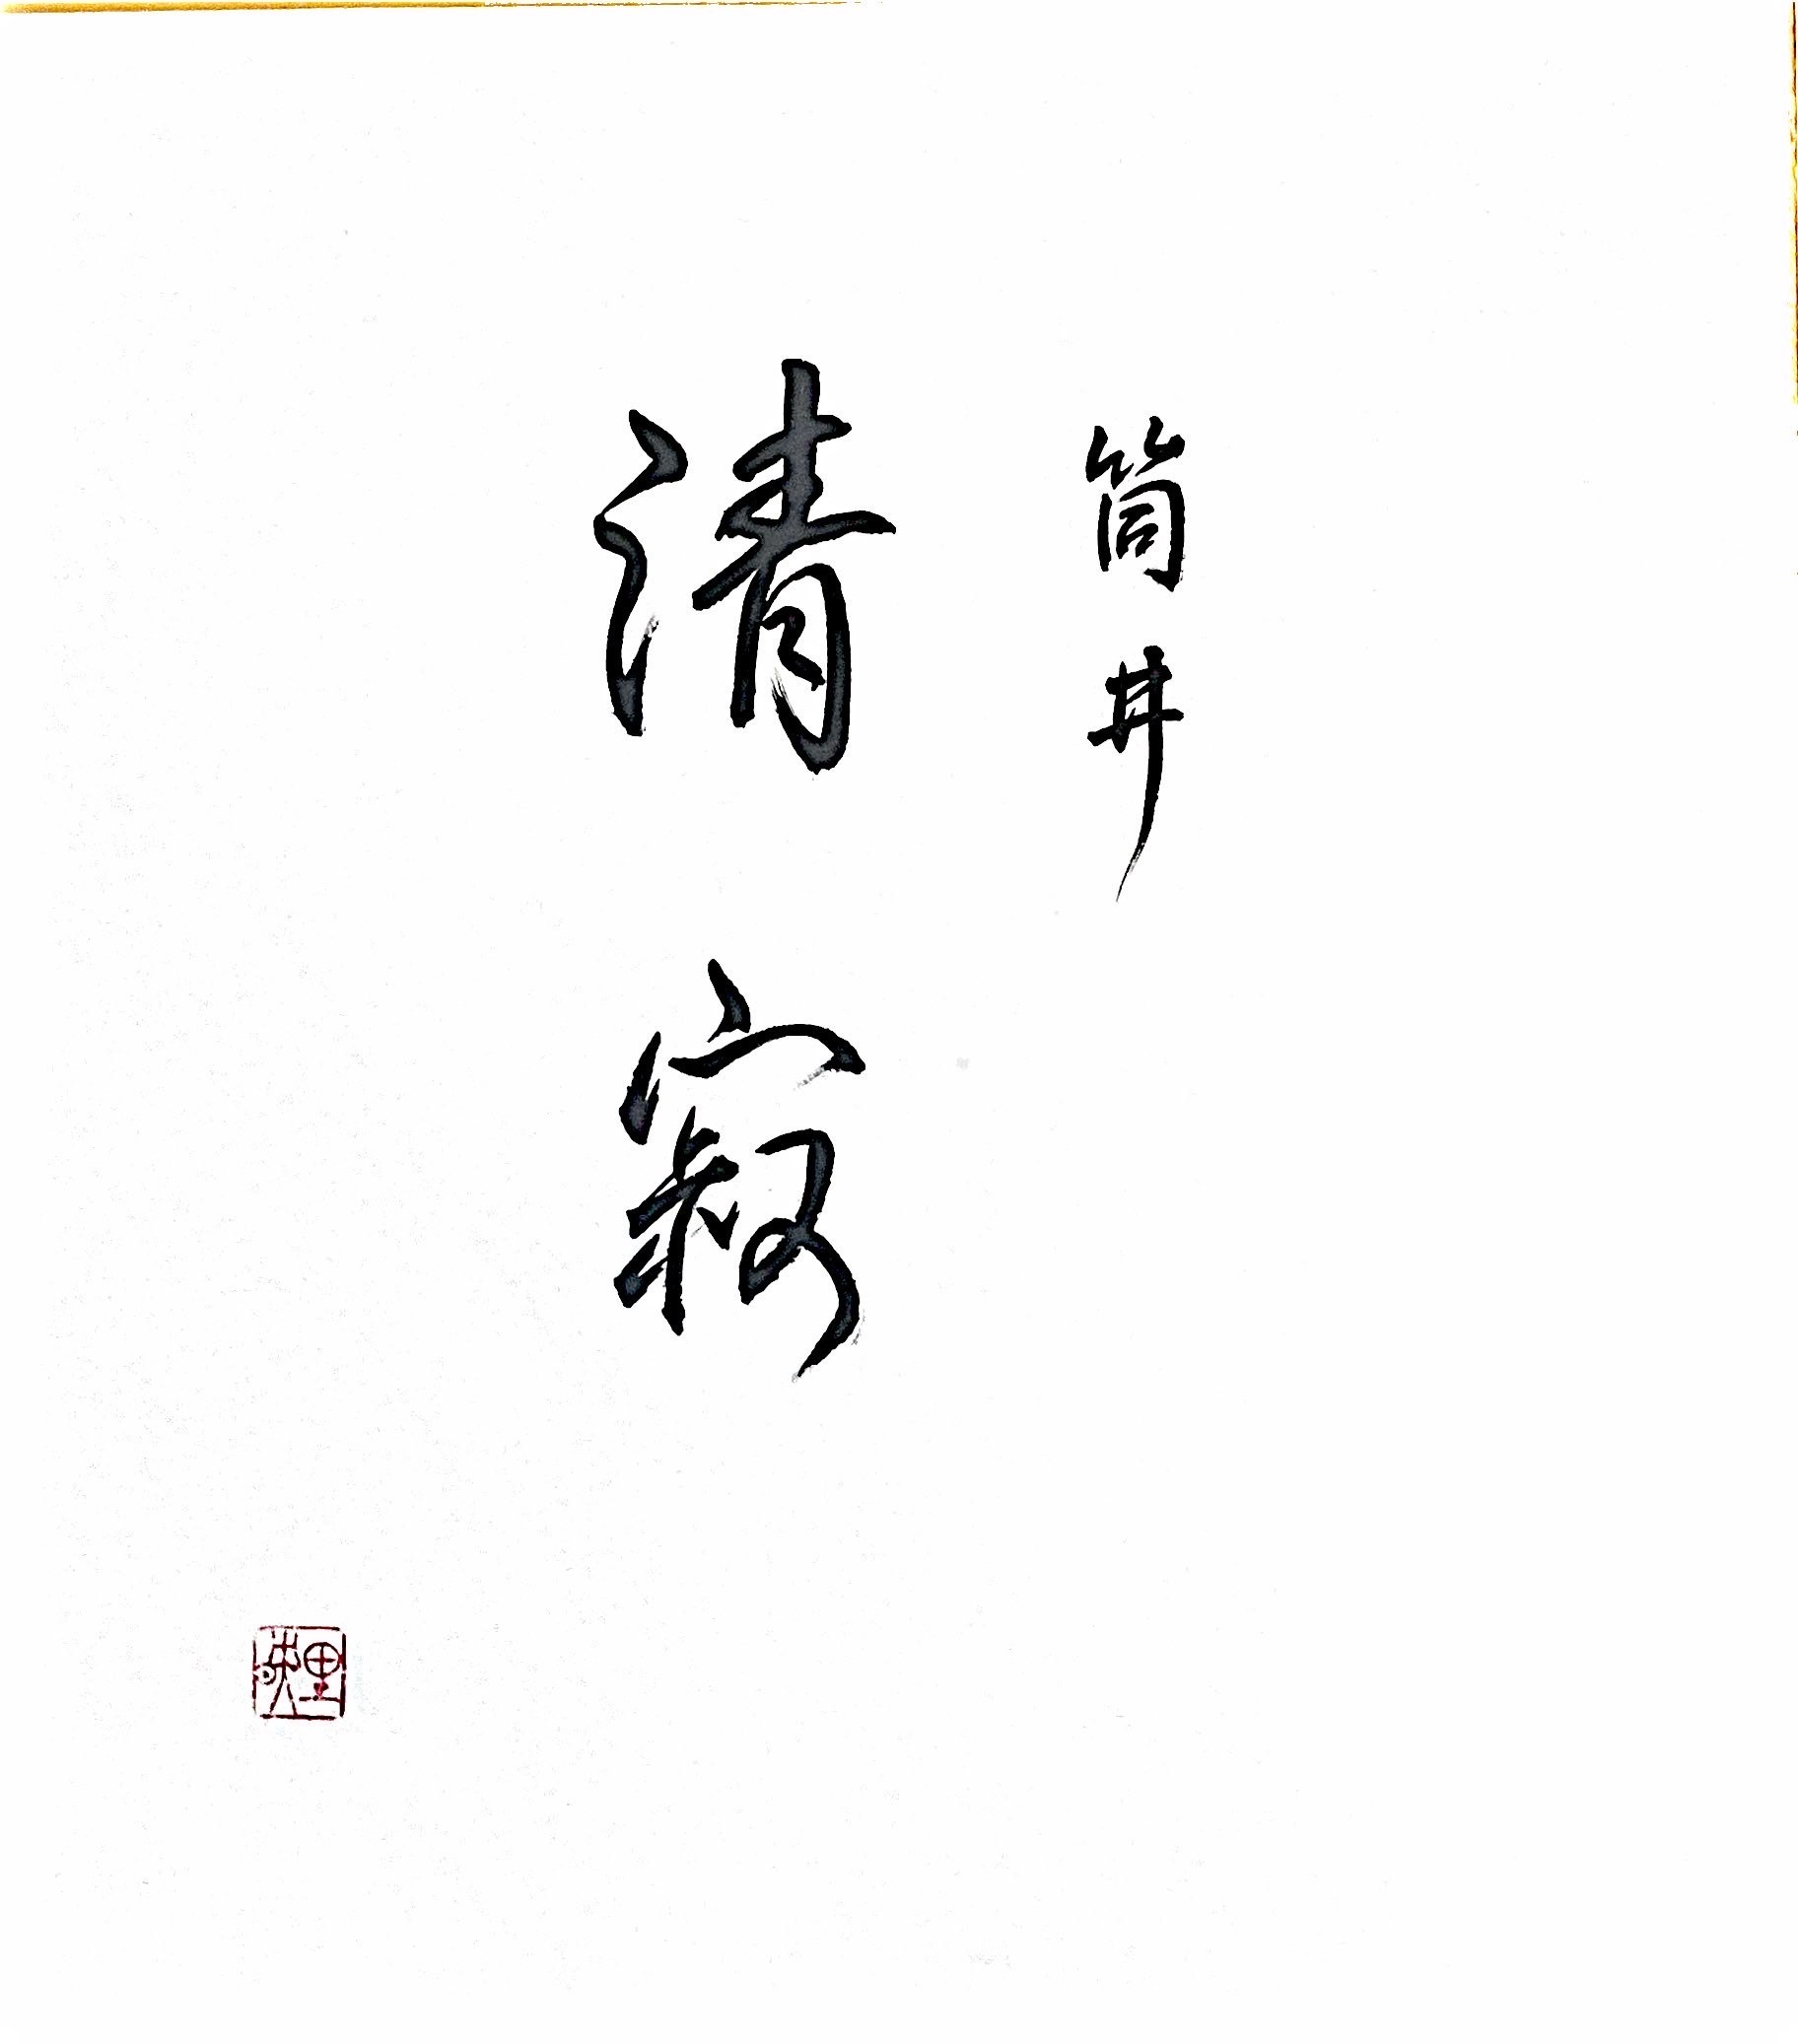 筒井
清寂